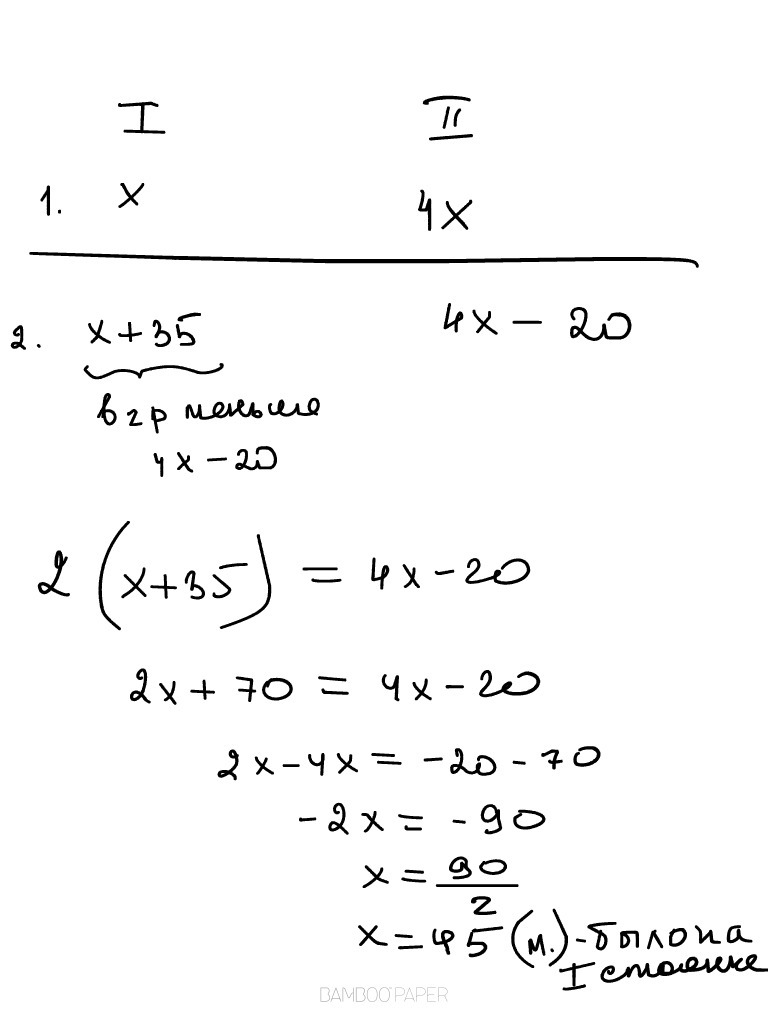 I II
1. x 4x
2. x+35 4x - 20
в 2р меньше
4x - 20
2 (x+35) = 4x - 20
2x + 70 = 4x - 20
2x - 4x = -20 - 70
-2x = -90
x = 90/2
x = 45 (м.) - было на
I стоянке
BAMBOO PAPER